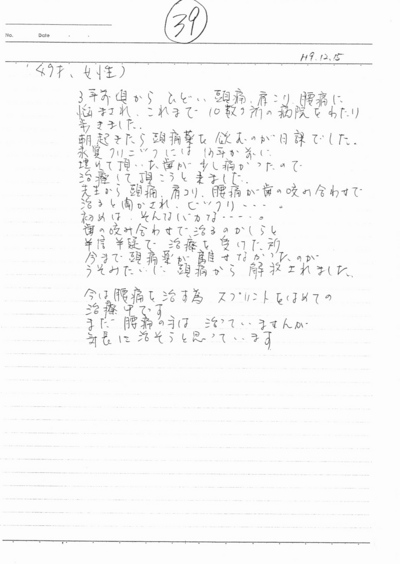 39
No.
Date
H9.12.15
(49才、女性)
3年前頃から ひどい 頭痛、肩こり、腰痛に
悩まされ、これまで 10数ヶ所の病院をわたり
歩きました。
朝起きたら頭痛薬を飲むのが日課でした。
クリニックには 10年か前に
埋めて頂いた歯が少し痛かったので
治療して頂こうと来ました。
先生から頭痛、肩コリ、腰痛が歯の咬み合わせで
治ると聞かされ、ビックリ・・・・。
初めは、そんなバカな・・・・。
歯の咬み合わせで治るのかしらと
半信半疑で 治療を受けた所
今まで頭痛薬が離せなかったのが
うそみたいに 頭痛から 解放されました。
今は腰痛を治す為 スプリントをはめての
治療中です
まだ 腰痛の方は 治っていませんが
気長に治そうと思っています